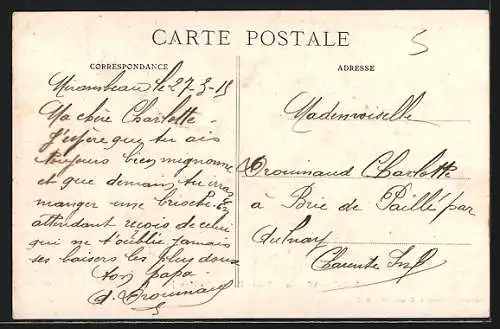 CARTE POSTALE
5
CORRESPONDANCE
Mirambeau le 27-3-15
Ma chère Charlotte.
J'espère que tu ais
toujours bien mignonne
et que demain tu iras
manger une brioche. En
attendant reçois de celui
qui ne t'oublie jamais
ses baisers les plus doux
ton papa.
A. Drouinaud
ADRESSE
Mademoiselle
Drouinaud Charlotte
à Brie de Paillé par
Aulnay
Charente Inf